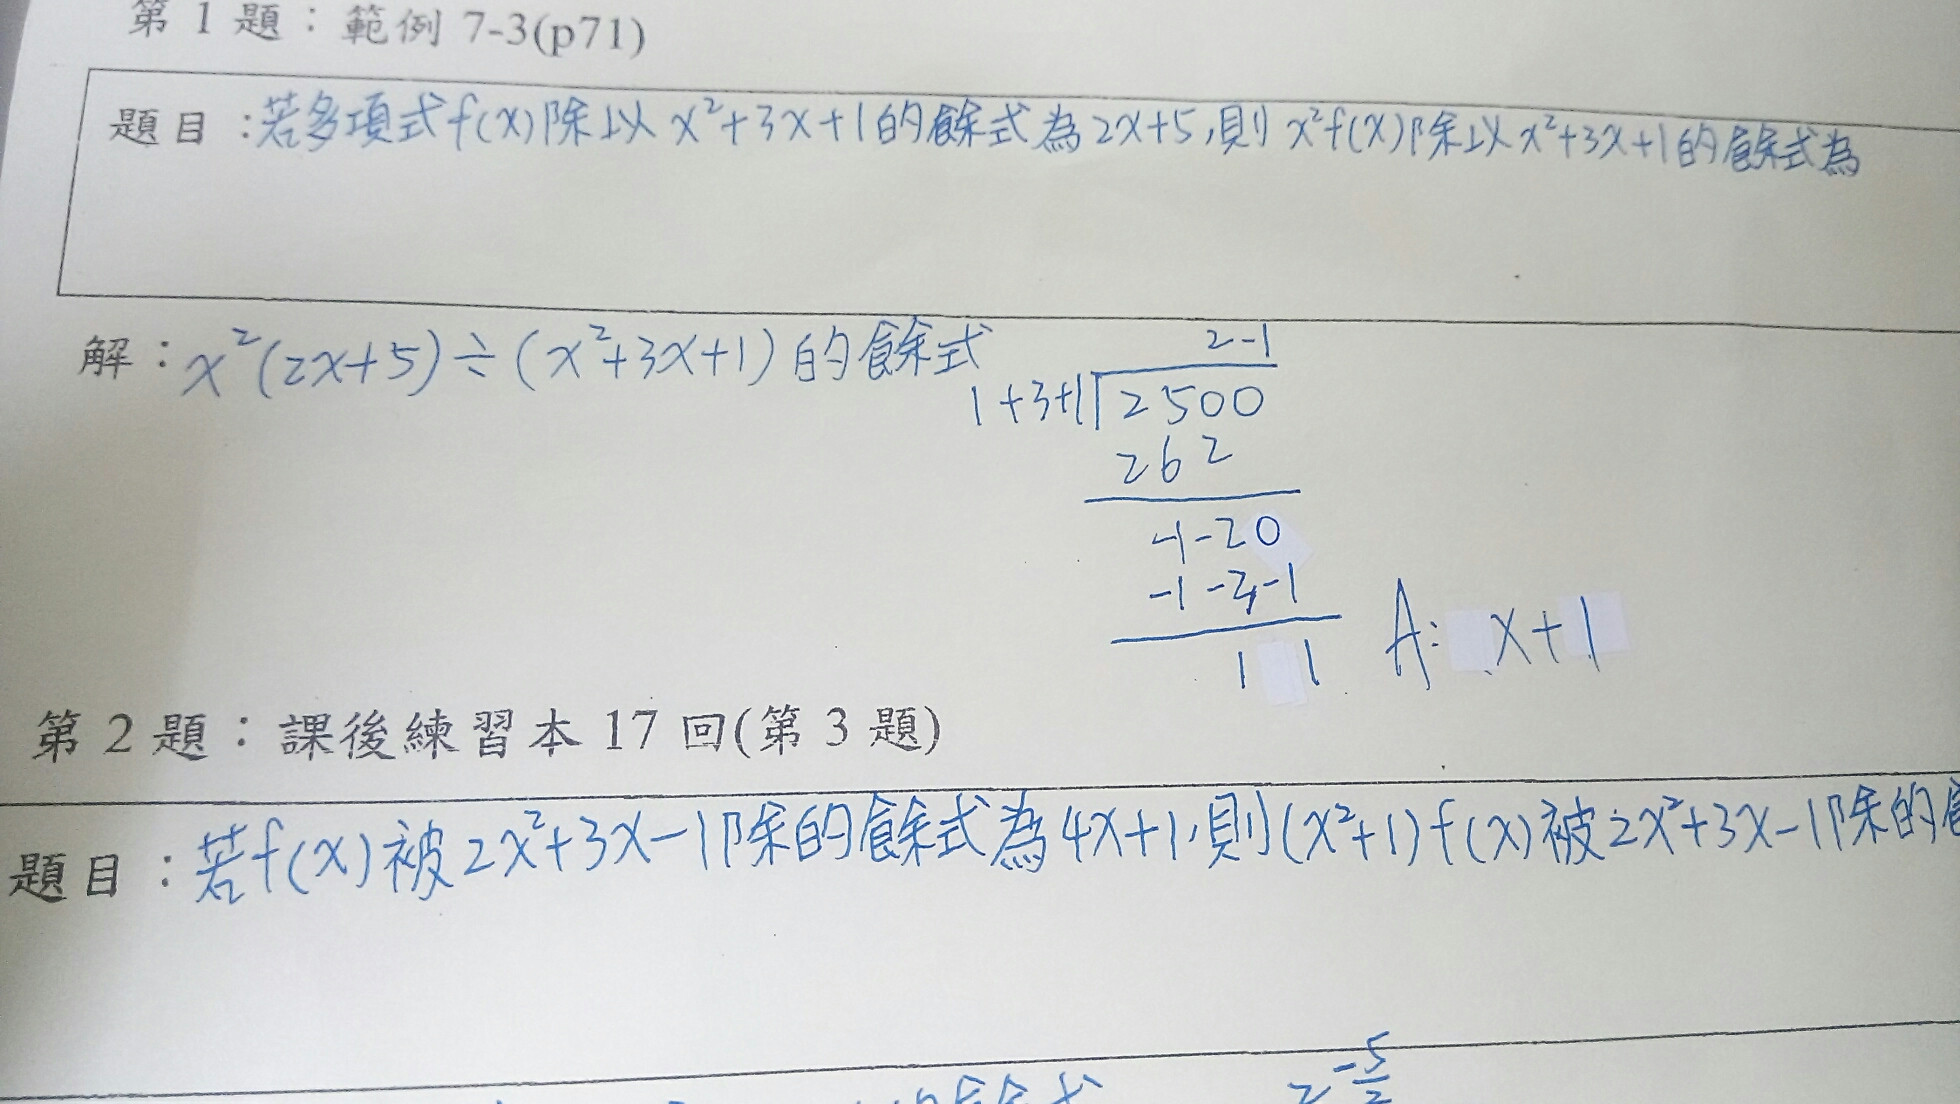 第 1 題：範例 7-3(p71)
題目：若多項式f(x)除以x²+3x+1的餘式為2x+5,則x²f(x)除以x²+3x+1的餘式為
解：x²(2x+5)÷(x²+3x+1)的餘式
2-1
1+3+1 2500
262
-1-20
-1-3-1
1 1
A: x+1
第 2 題：課後練習本 17 回(第 3 題)
題目：若f(x)被2x²+3x-1除的餘式為4x+1,則(x²+1)f(x)被2x²+3x-1除的
2-5/2